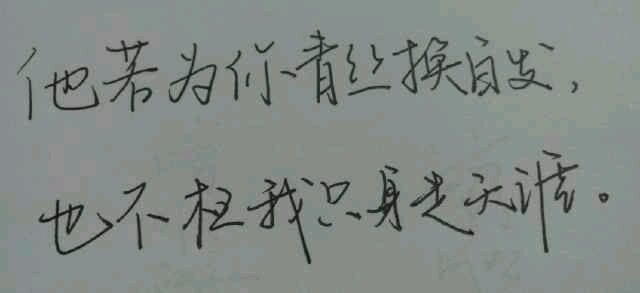 他若为你青丝换白发，
也不枉我只身走天涯。